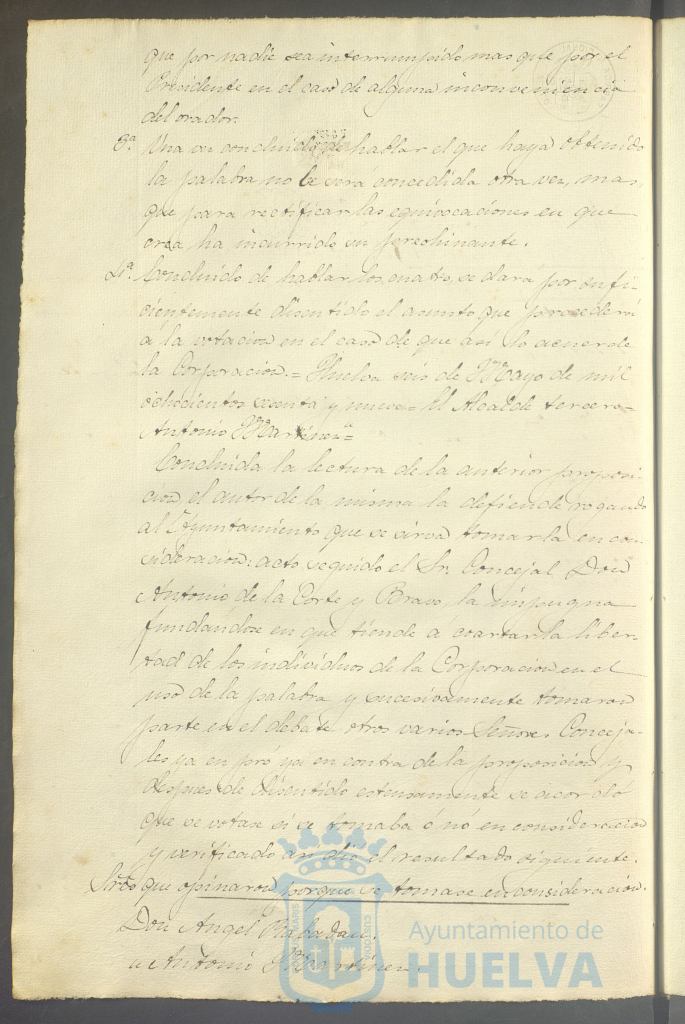 que por nadie sea interrumpido mas que por el
Presidente en el caso de alguna inconveniencia
del orador.
3ª. Una vez concluido de hablar el que haya obtenido
la palabra no le será concedida otra vez, mas,
que para rectificar las equivocaciones en que
crea ha incurrido su preopinante.
4ª. Concluido de hablar los cuatro, se dara por sufi-
cientemente discutido el asunto que procederá
a la votacion en el caso de que asi lo acuerde
la Corporacion.= Huelva seis de Mayo de mil
ochocientos sesenta y nueve= El Alcalde tercero=
Antonio Martinez="
Concluida la lectura de la anterior proposi-
cion, el autor de la misma la defiende rogando
al Ayuntamiento que se sirva tomarla en con-
sideracion: acto seguido el Sr. Concejal Don
Antonio de la Corte y Bravo, la impugna
fundandose en que tiende á coartar la liber-
tad de los individuos de la Corporacion en el
uso de la palabra y sucesivamente tomaron
parte en el debate otros varios Señores Conceja-
les ya en pró ya en contra de la proposicion y
despues de discutido estensamente se acordó
que se votase si se tomaba ó no en consideracion
y verificado asi dió el resultado siguiente.
Sres que opinaron porque se tomase en consideracion.
Don Angel Rabadan.
" Antonio Martinez.
Ayuntamiento de
HUELVA